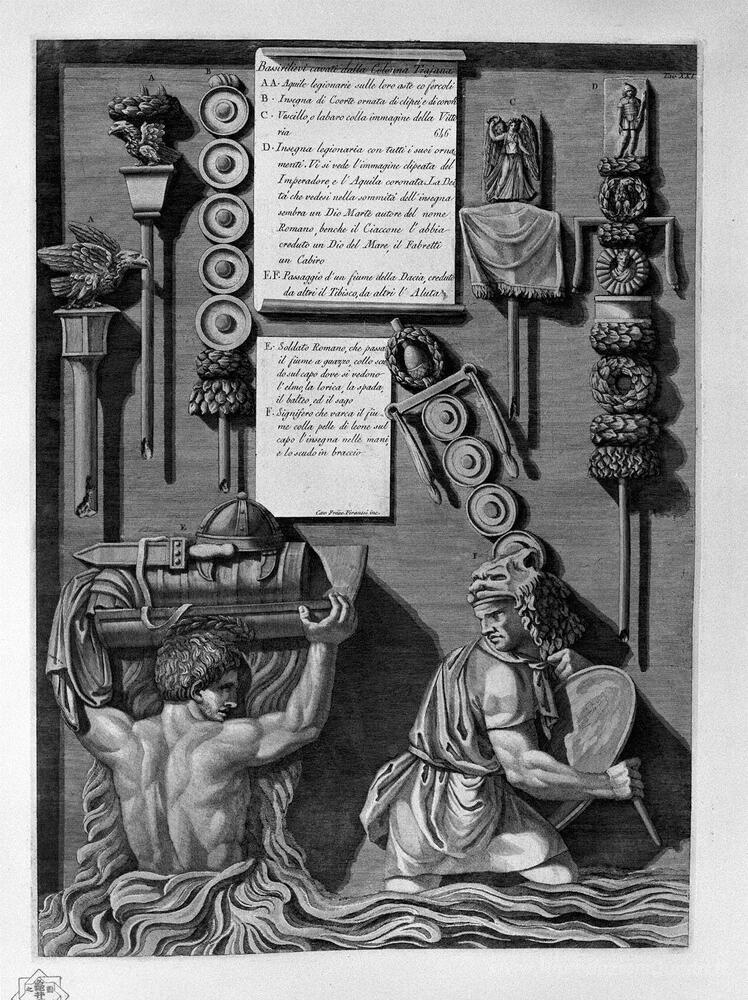 Tav. XXI.
A
B
C
D
Bassirilievi cavati dalla Colonna Trajana
AA· Aquile legionarie sulle loro aste co fercoli
B · Insegna di Coorte ornata di clipei e di coron
C · Vescillo, o labaro colla immagine della Vitto
ria 646
D · Insegna legionaria con tutti i suoi orna
menti. Vi si vede l'immagine clipeata del
Imperadore, e l'Aquila coronata. La Dei
tà che vedesi nella sommità dell'insegna
sembra un Dio Marte autore del nome
Romano, benche il Ciaccone l'abbia
creduto un Dio del Mare, il Fabretti
un Cabiro
EF· Passaggio d'un fiume della Dacia, creduto
da altri il Tibisco, da altri l'Aluta
A
E · Soldato Romano, che passa
il fiume a guazzo, collo scu
do sul capo dove si vedono
l'elmo, la lorica, la spada,
il balteo, ed il sago
F · Signifero che varca il fiu
me colla pelle di leone sul
capo l'insegna nelle mani,
e lo scudo in braccio
Cav Piranesi inc.
E
F